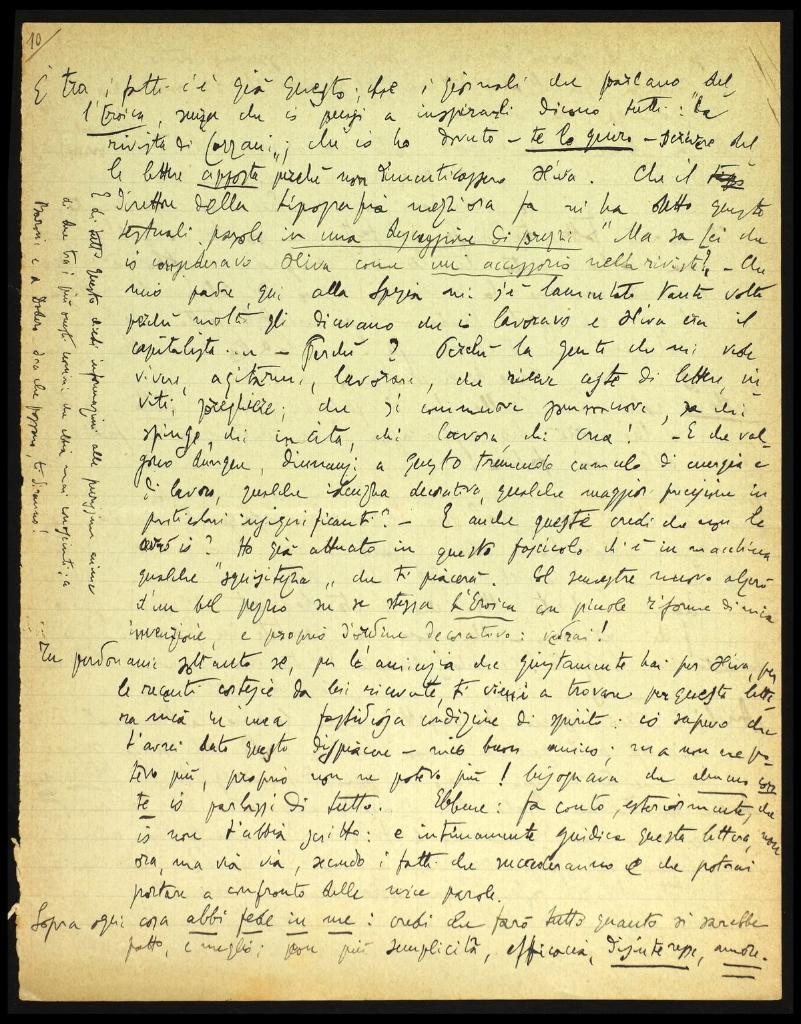 10
E tra i fatti c'è già questo; che i giornali che parlano del
l'Eroica, senza che io pensi a inspirarli dicono tutti: "La
rivista di Cozzani"; che io ho dovuto – te lo giuro – scrivere del
le lettere apposta perchè non dimenticassero Oliva. Che il
direttore della tipografia mezz'ora fa mi ha detto queste
testuali parole in una discussione di prezzi "Ma sa Lei che
io consideravo Oliva come un accessorio nella rivista? – Che
mio padre, qui alla Spezia mi s'è lamentato tante volte
perchè molti gli dicevano che io lavoravo e Oliva era il
capitalista... – Perchè? Perchè la gente che mi vede
vivere, agitarmi, lavorare, che riceve ceste di lettere, in-
viti, preghiere; che si commuove sa chi
spinge, chi incita, chi lavora, chi crea! – E che val-
gono dunque, dinnanzi a questo tremendo cumulo di energia e
di lavoro, qualche decorativa, qualche maggior precisione in
particolari insignificanti? – E anche queste credi che non le
avrò io? Ho già attuato in questo fascicolo ch'è in macchina
qualche "squisitezza" che ti piacerà. Col semestre nuovo
d'un bel pezzo su se stessa L'Eroica con piccole riforme di mia
invenzione, e proprio d'ordine decorativo: vedrai!
Tu perdonami soltanto se, per l'amicizia che giustamente hai per Oliva, per
le recenti cortesie da lui ricevute, ti vieni a trovare per questa lette
ra mia in una fastidiosa condizione di spirito: io sapevo che
t'avrei dato questo dispiacere – mio buon amico; ma non ne po-
tevo più, proprio non ne potevo più! Bisognava che almeno con
te io parlassi di tutto. Ebbene: fa conto, esteriormente, che
io non t'abbia scritto: e intimamente giudica questa lettera, non
ora, ma via via, secondo i fatti che succederanno e che potrai
portare a confronto delle mie parole.
Sopra ogni cosa abbi fede in me: credi che farò tutto quanto si sarebbe
fatto, e meglio; con più semplicità, efficacia, disinteresse, amore.
E di tutto questo chiedi informazioni alle persone
di due tra i più onesti uomini che abbia mai conosciuti: a
e a che possono, ti diranno!